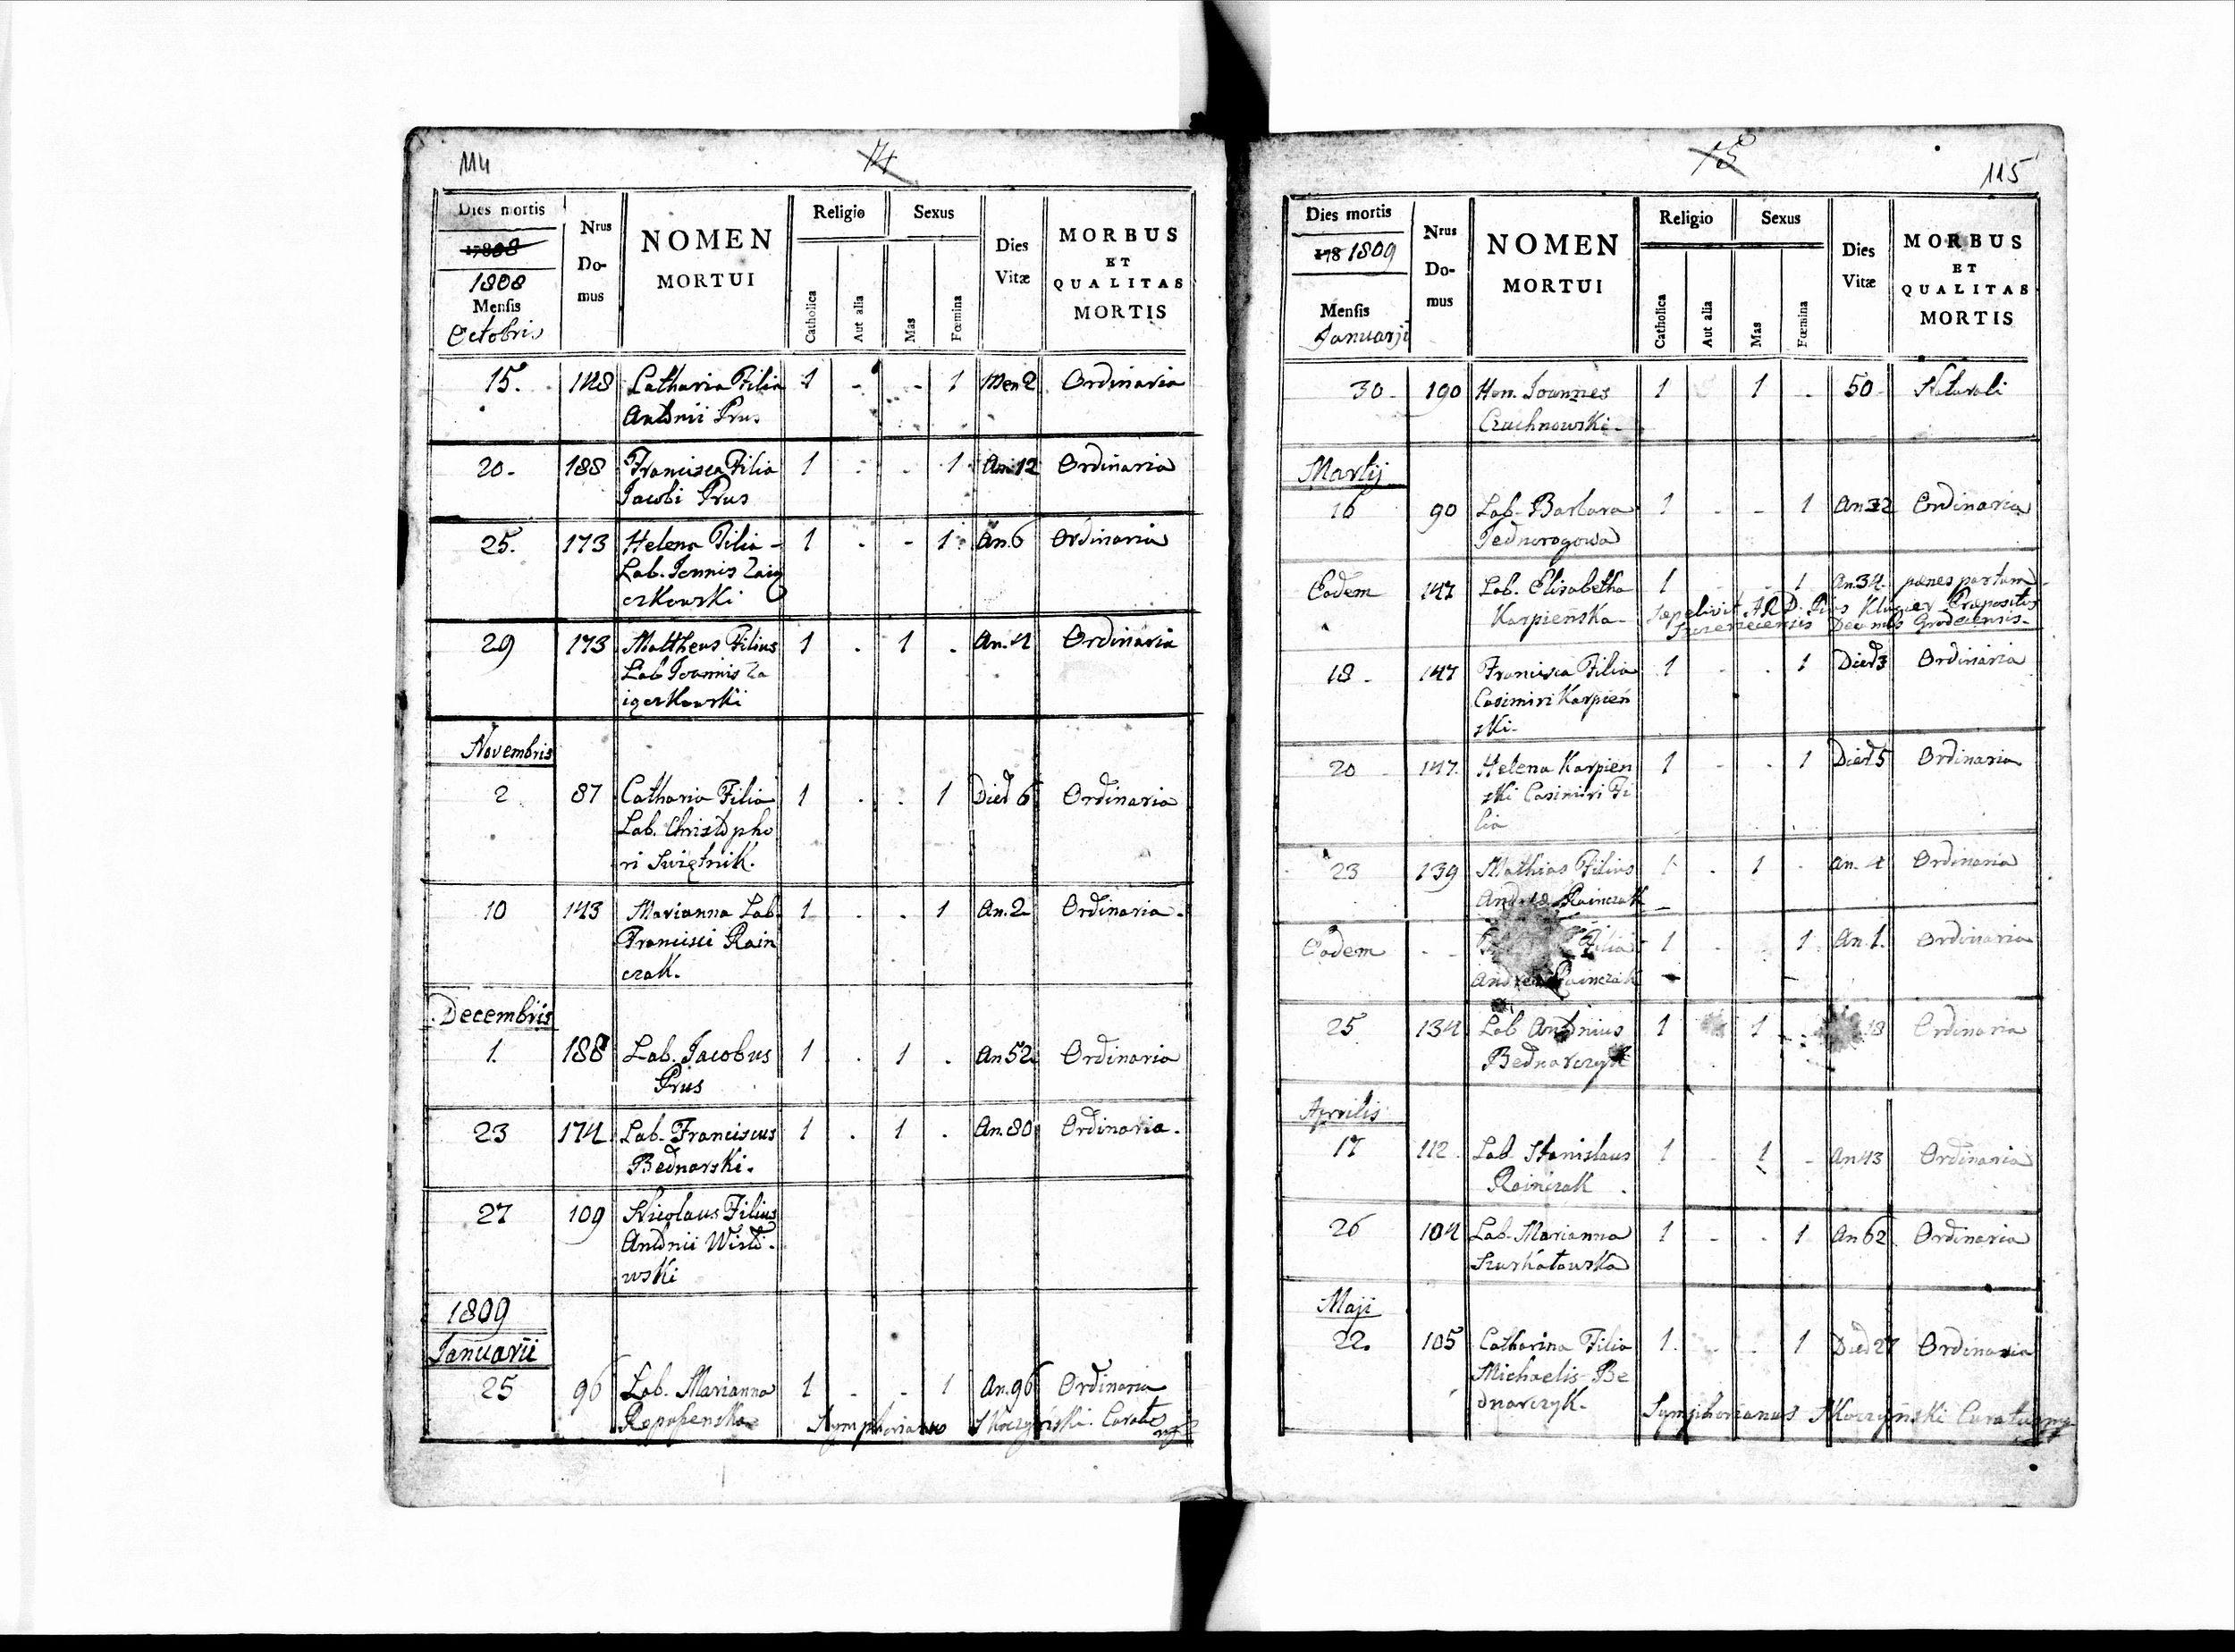 114
14
Dies mortis
1808
1808
Mensis
Octobris
Nrus
Do-
mus
NOMEN
MORTUI
Religio
Catholica
Aut alia
Sexus
Mas
Fœmina
Dies
Vitæ
MORBUS
ET
QUALITAS
MORTIS
15. 148 Catharia Filia 1 - - 1 Men 2 Ordinaria
Antonii Prus
20. 188 Francisca Filia 1 . . 1 An. 12 Ordinaria
Jacobi Prus
25. 173 Helena Filia - 1 . - 1 An. 6 Ordinaria
Lab. Joannis Zaig
erkowski
29 173 Mattheus Filius 1 . 1 . An. 4 Ordinaria
Lab Joannis Za
igerkowski
Novembris
2 87 Catharia Filia 1 . . 1 Died 6 Ordinaria
Lab. Christopho
ri Swiętnik.
10 143 Marianna Lab. 1 . . 1 An. 2 Ordinaria.
Francisci Rain
czak.
Decembris
1. 188 Lab. Jacobus 1 . 1 . An 52 Ordinaria
Prus
23 174 Lab. Franciscus 1 . 1 . An. 80 Ordinaria.
Bednarski.
27 109 Nicolaus Filius
Antonii Wisto-
wski
1809
Januarii
25 96 Lab. Marianna 1 - - 1 An. 96 Ordinaria
Symphorianus Skoczyński Curatus
115
15
Dies mortis
178 1809
Mensis
Januarji
Nrus
Do-
mus
NOMEN
MORTUI
Religio
Catholica
Aut alia
Sexus
Mas
Fœmina
Dies
Vitæ
MORBUS
ET
QUALITAS
MORTIS
30. 190 Hon. Joannes 1 1 . 50 Naturali
Czuchnowski.
Martij
16 90 Lab. Barbara 1 - - 1 An 32 Ordinaria
Jednorogowa
Eodem 147 Lab. Elisabetha 1 - - 1 An. 34. penes partum
Karpieńska. Sepelivit A.R.D. Pius Præpositus
Grodecensis.
18. 147 Francisca Filia 1 . . 1 Died 3 Ordinaria
Casimiri Karpień
ski.
20 147. Helena Karpien 1 - . 1 Died. 5 Ordinaria
ski Casimiri Fi
lia
23 139 Mathias Filius 1 . 1 . An. 4 Ordinaria
Andreæ Rainczak
Eodem - - Filia 1 . . 1 An. 1. Ordinaria
Andreæ Rainczak
25 134 Lab Antonius 1 1 . Ordinaria
Bednarczyk
Aprilis
17 112. Lab. Stanislaus 1 - 1 - An 43 Ordinaria
Rainczak.
26 104 Lab. Marianna 1 - . 1 An 62 Ordinaria
Szurkatowska
Maji
22. 105 Catharina Filia 1. - . 1 Died 27 Ordinaria
Michaelis Be
dnarczyk. Symphorianus Skoczyński Curatus